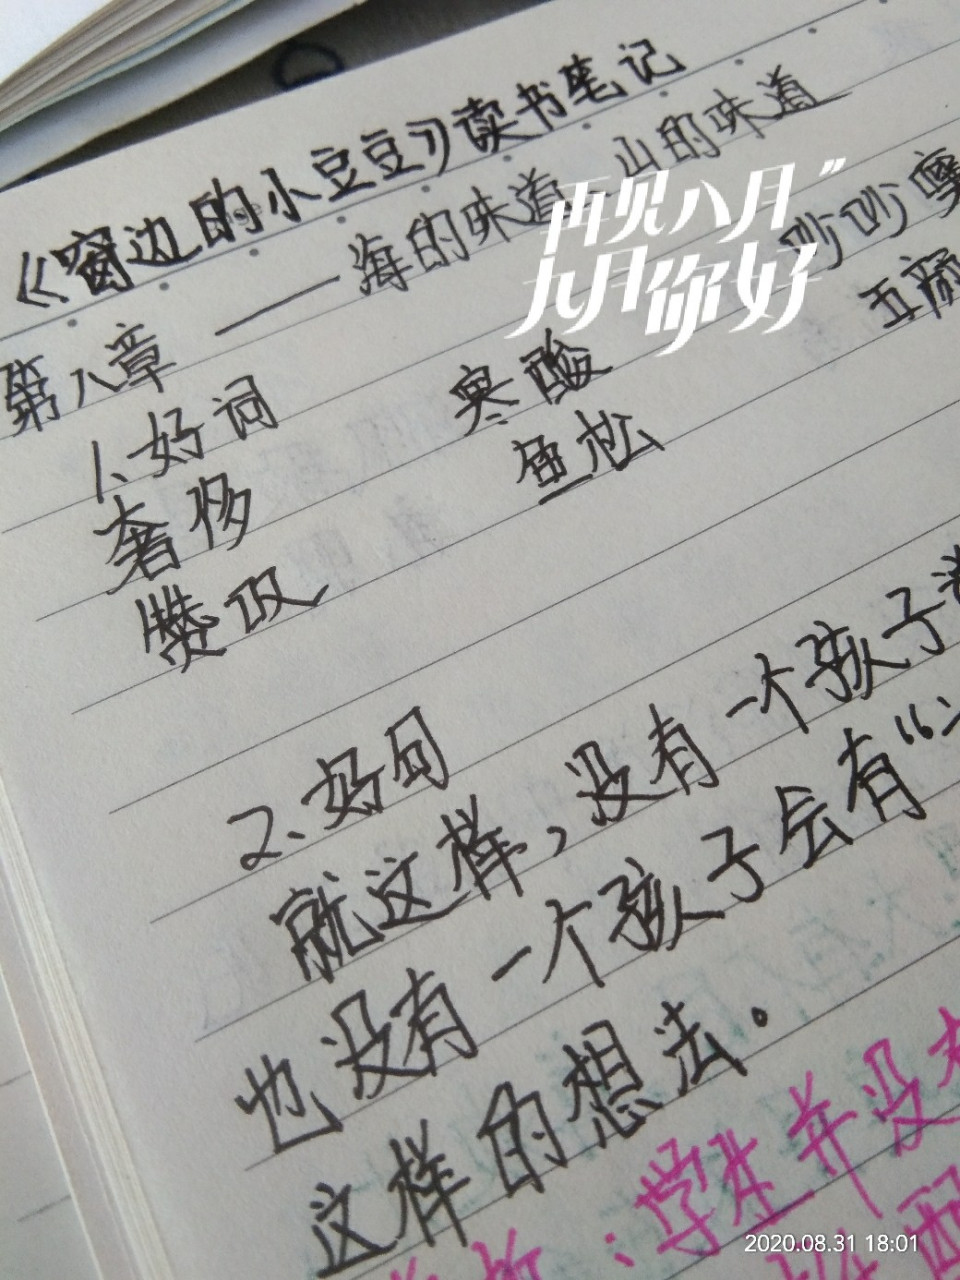 《窗边的小豆豆》读书笔记
第八章 ——海的味道、山的味道
再见八月”
九月你好
1、好词
奢侈 寒酸 吵吵嚷
赞叹 鱼松 五颜
2、好句
就这样,没有一个孩子
也没有一个孩子会有“
这样的想法。
:学生并没有
配
2020.08.31 18:01